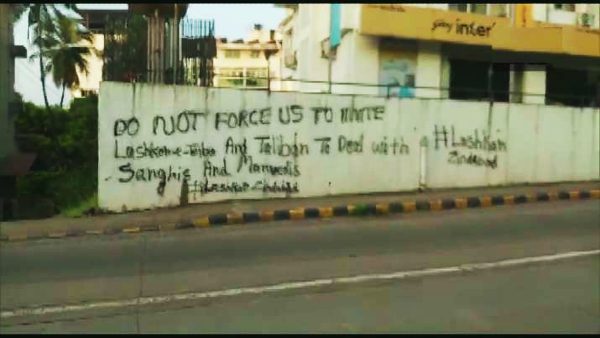 inter
DO NOT FORCE US TO INVITE
Lashkar-e-Toiba And Taliban To Deal with
Sanghis And Manuvedis
#Lashkar Zindabad
#Lashkar
Zindabad